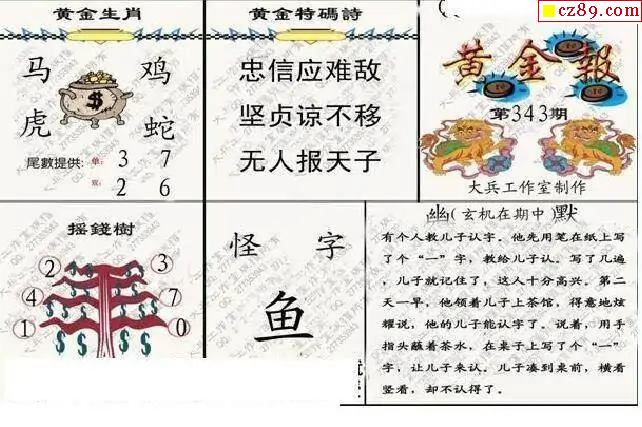 cz89.com
黄金生肖
马 鸡
虎 蛇
尾數提供: 单: 3 7
双: 2 6
黄金特碼詩
忠信应难敌
坚贞谅不移
无人报天子
黄金報
第343期
大兵工作室制作
摇錢樹
2 3
4 7
1 0
怪 字
鱼
幽(玄机在期中)默
有个人教儿子认字。他先用笔在纸上写
了个“一”字，教给儿子认。写了几遍
，儿子就记住了，这人十分高兴。第二
天一早，他领着儿子上茶馆，得意地炫
耀说，他的儿子能认字了。说着，用手
指头蘸着茶水，在桌子上写了个“一”
字，让儿子来认。儿子凑到桌前，横看
竖看，却不认得了。